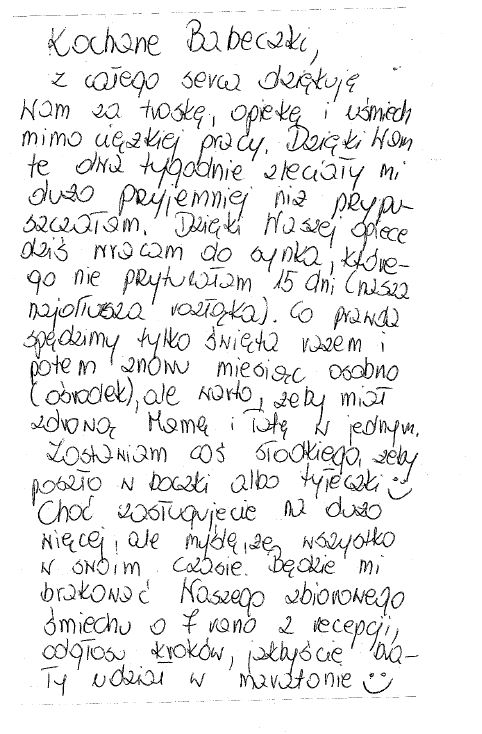 Kochane Babeczki,
z całego serca dziękuję
Wam za troskę, opiekę i uśmiech
mimo ciężkiej pracy. Dzięki Wam
te dwa tygodnie zleciały mi
dużo przyjemniej niż przypu-
szczałam. Dzięki Waszej opiece
dziś wracam do synka, które-
go nie przytulałam 15 dni (nasza
najdłuższa rozłąka). Co prawda
spędzimy tylko święta razem i
potem znowu miesiąc osobno
(ośrodek), ale warto, żeby miał
zdrową Mamę i Tatę w jednym.
Zostawiam coś słodkiego, żeby
poszło w boczki albo tyłeczki
Choć zasługujecie na dużo
więcej, ale myślę, że wszystko
w swoim czasie. Będzie mi
brakować Waszego zbiorowego
śmiechu o 7 rano z recepcji,
odgłosu kroków, jakbyście bra-
ły udział w maratonie